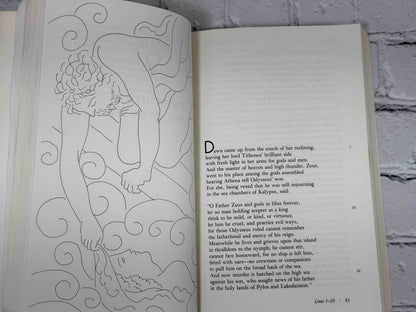 Dawn came up from the couch of her reclining,
leaving her lord Tithonos' brilliant side
with fresh light in her arms for gods and men.
And the master of heaven and high thunder, Zeus,
went to his place among the gods assembled
hearing Athena tell Odysseus' woe.
For she, being vexed that he was still sojourning
in the sea chambers of Kalypso, said:
"O Father Zeus and gods in bliss forever,
let no man holding scepter as a king
think to be mild, or kind, or virtuous;
let him be cruel, and practice evil ways,
for those Odysseus ruled cannot remember
the fatherhood and mercy of his reign.
Meanwhile he lives and grieves upon that island
in thralldom to the nymph; he cannot stir,
cannot fare homeward, for no ship is left him,
fitted with oars—no crewmen or companions
to pull him on the broad back of the sea.
And now murder is hatched on the high sea
against his son, who sought news of his father
in the holy lands of Pylos and Lakedaimon."
Lines 1–20 · 81